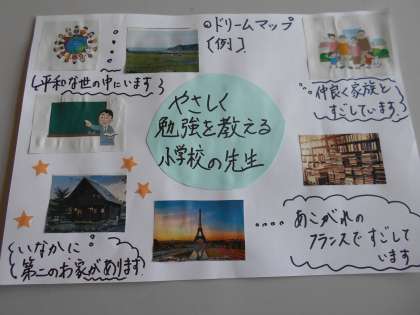 ◎ドリームマップ
〔例〕
平和な世の中にいます
仲良く家族と
すごしています
やさしく
勉強を教える
小学校の先生
いなかに
第二のお家があります
あこがれの
フランスですごして
います